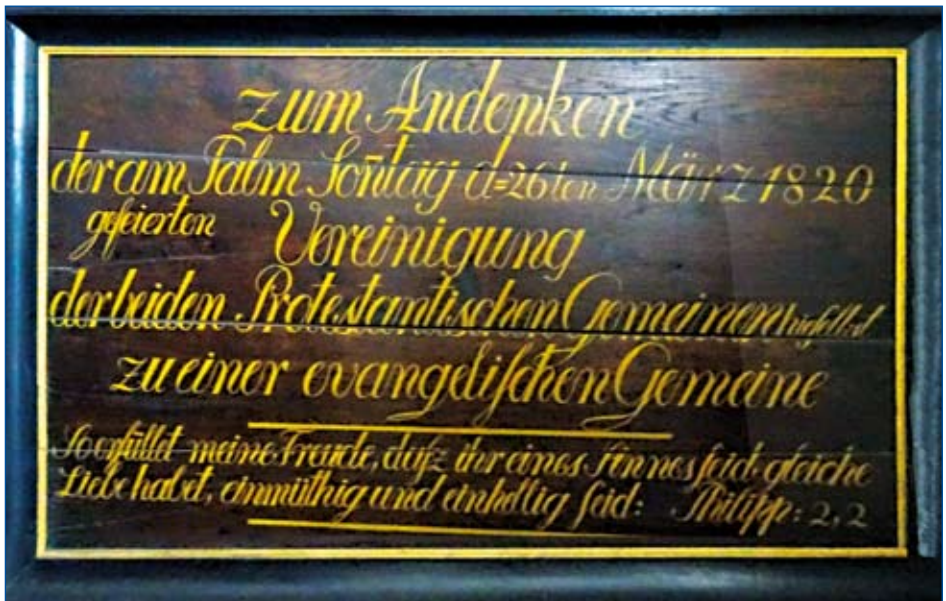 zum Andenken
der am Palm Son̄tag d=26ten März 1820
gefeierten Vereinigung
der beiden Protestantischen Gemeinen hieselbst
zu einer evangelischen Gemeine
So erfüllet meine Freude, dasz ihr eines Sinnes seid, gleiche
Liebe habet, einmüthig und einhellig seid: Philipp: 2, 2